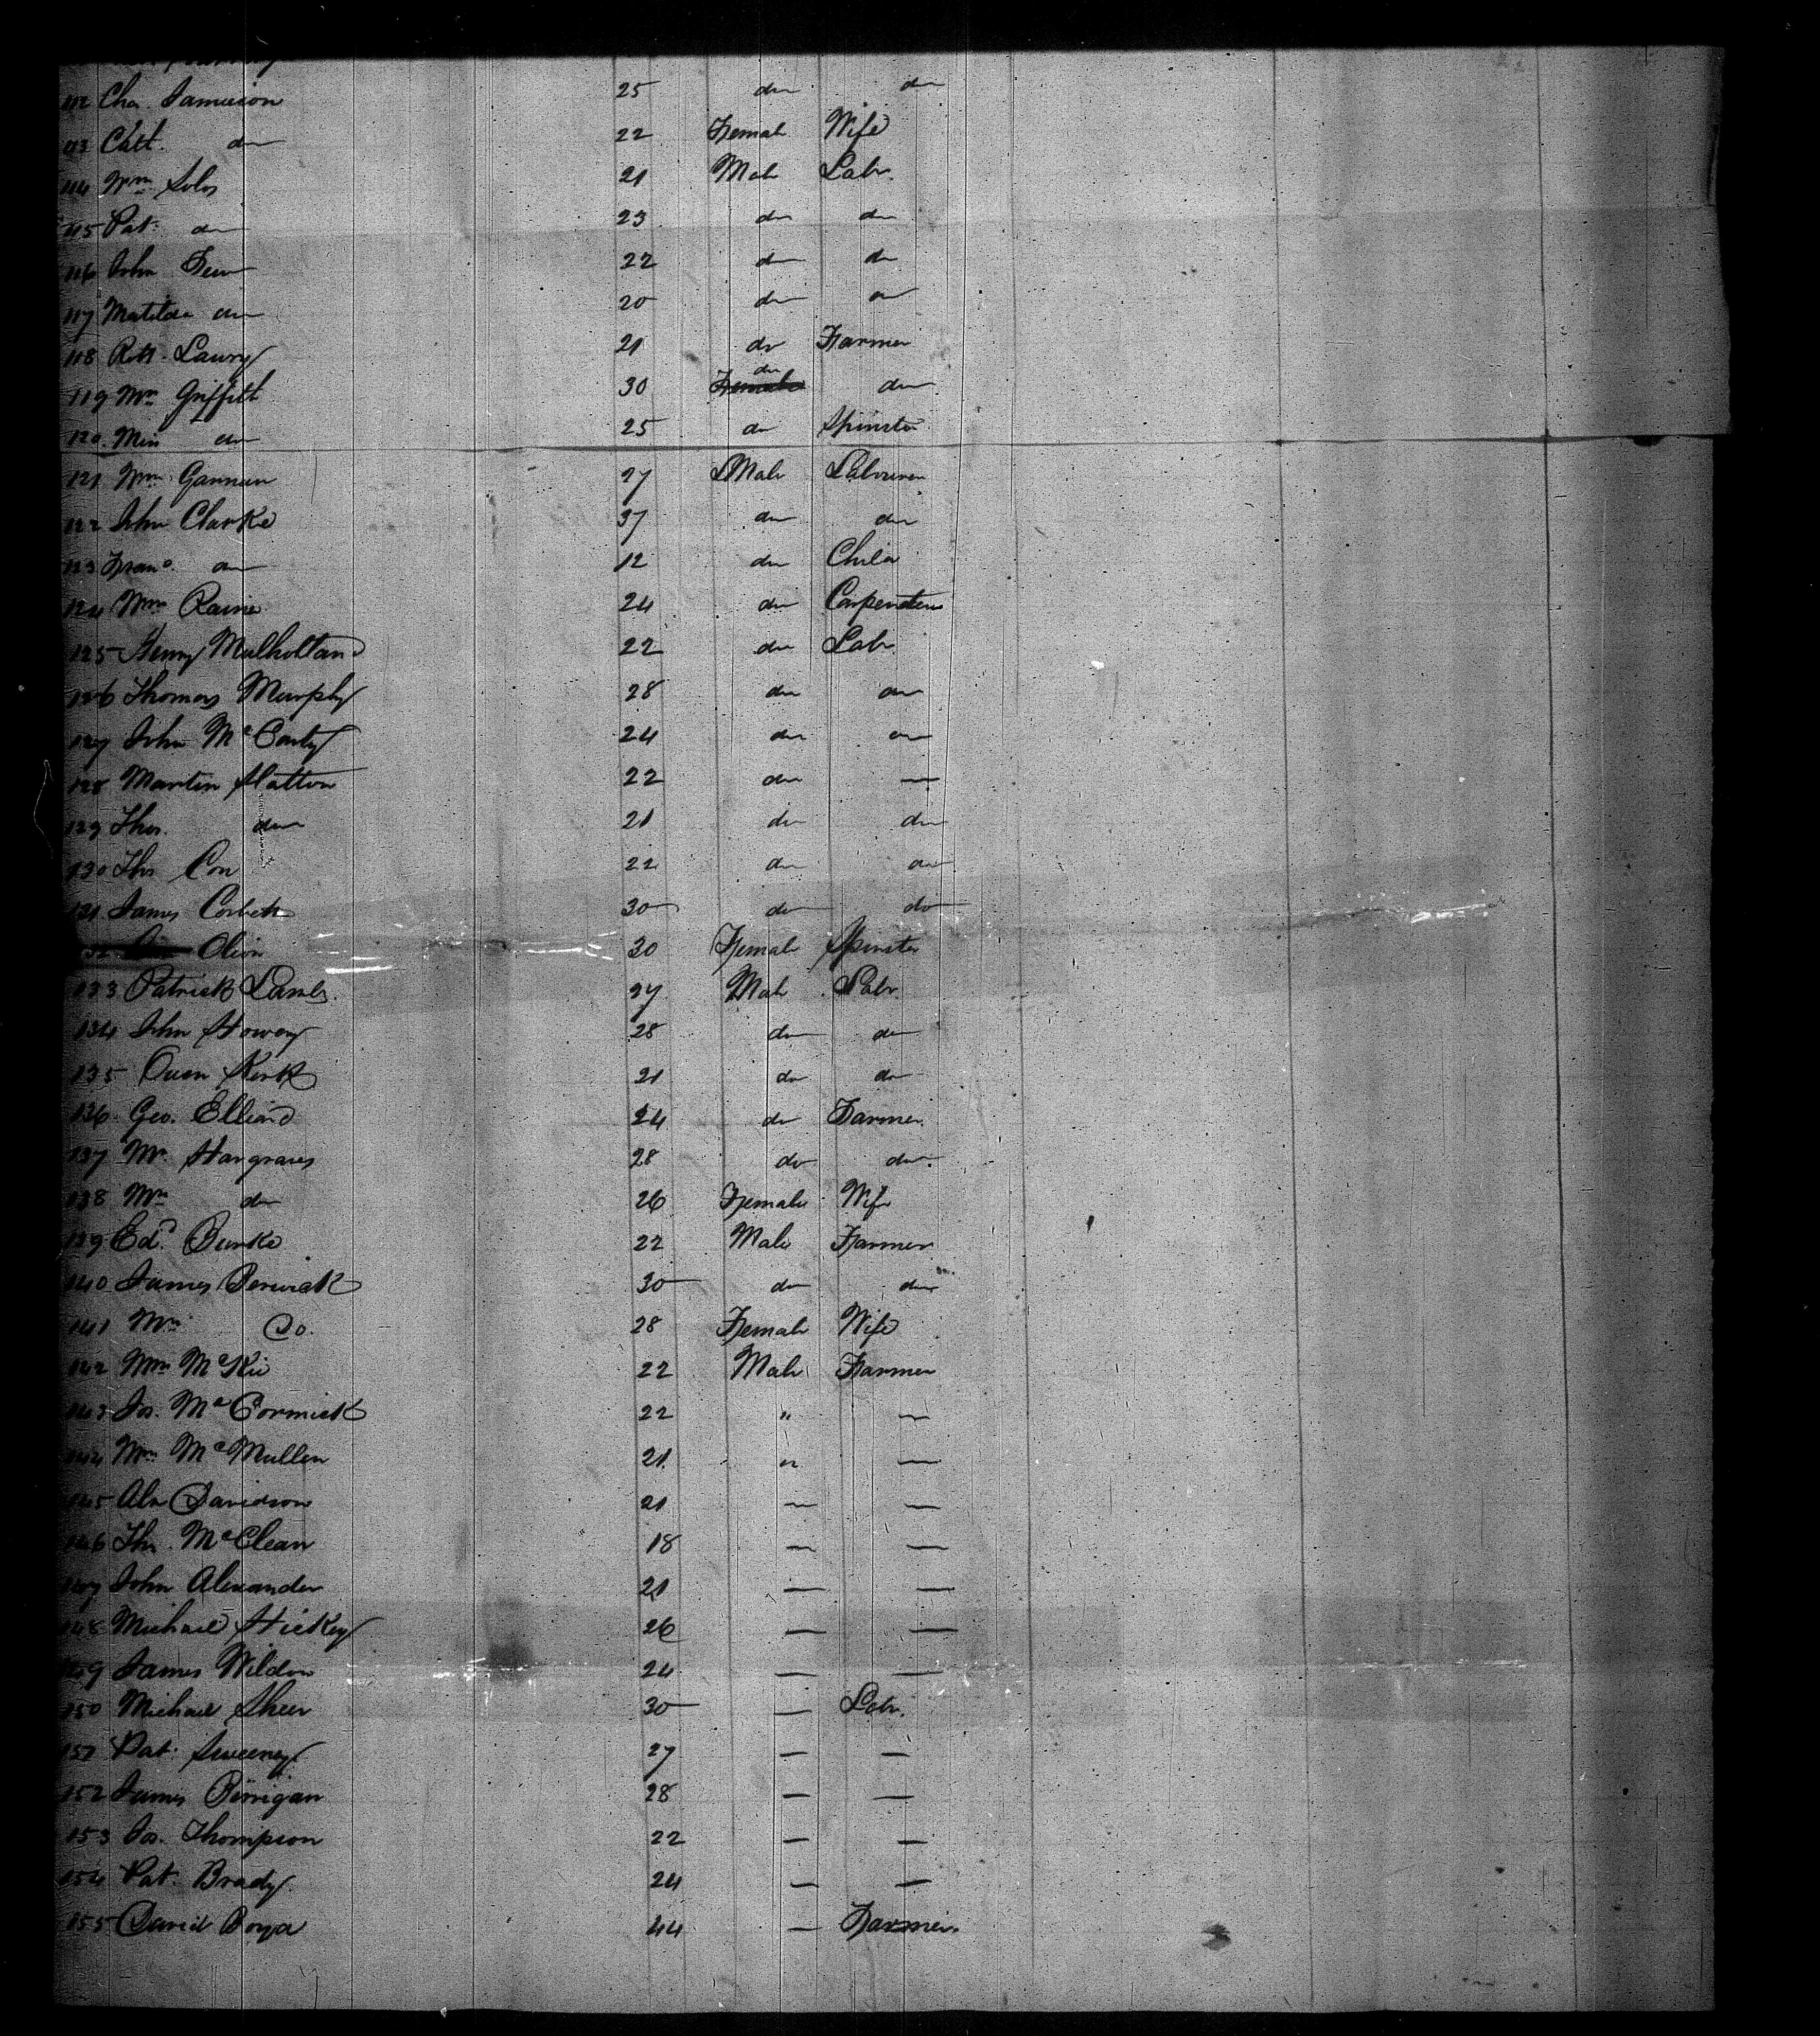 112 Cha. Jamieson 25 do do
113 Cath. do 22 Female Wife
114 Wm 21 Male Labr.
115 Pat. do 23 do do
116 John 22 do do
117 Matilda do 20 do do
118 Robt. Lawry 21 do Farmer
119 Mr Griffith 30 do do
120. Miss do 25 do Spinster
121 Wm Gannun 27 Male Labourer
122 John Clarke 37 do do
123 Frans. do 12 do Child
124 Wm Raine 24 do Carpenter
125 Henry Mulholland 22 do Labr.
126 Thomas Murphy 28 do do
127 John McCarty 24 do do
128 Martin Hatton 22 do —
129 Thos. do 21 do do
130 Thos Con 22 do do
131 James Corbett 30 do do
132 30 Female Spinster
133 Patrick Lamb. 27 Male Labr.
134 John Howey 28 do do
135 Owen Kirk 21 do do
136. Geo. Elliard 24 do Farmer.
137 Mr. Hargraves 28 do do
138 Mrs do 26 Female Wife
139 Edd. Burke 22 Male Farmer
140 James Berwick 30 do do
141 Mrs Do. 28 Female Wife
142 Wm McKie 22 Male Farmer
143 Jos. McCormick 22 " —
144 Wm McMullen 21. " —
145 Alx Davidson 21 — —
146 Ths. McClean 18 — —
147 John Alexander 21 — —
148 Michael Hickey 26 — —
149 James Wildon 24 — —
150 Michael Sheer 30 — Labr.
151 Pat. Sweeney 27 — —
152 James Perrigan 28 — —
153 Jos. Thompson 22 — —
154 Pat. Brady 24 — —
155 David Boyd 44 — Farmer